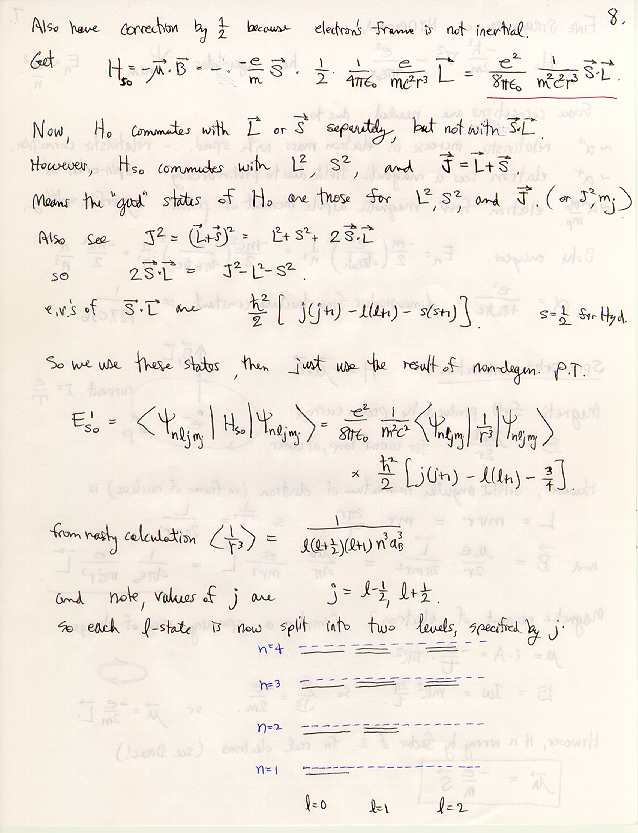 8.
Also have correction by 1/2 because electron's frame is not inertial.
Get H_so = -μ⃗·B⃗ = - · -e/m S⃗ · 1/2 · 1/4πε₀ e/mc²r³ L⃗ = e²/8πε₀ 1/m²c²r³ S⃗·L⃗.
Now, H₀ commutes with L⃗ or S⃗ separately, but not with S⃗·L⃗.
However, H_so commutes with L², S², and J⃗ = L⃗+S⃗.
Means the "good" states of H₀ are those for L², S², and J⃗. (or J², m_j)
Also see J² = (L⃗+S⃗)² = L²+S²+ 2S⃗·L⃗
so 2S⃗·L⃗ = J²-L²-S².
e.v.'s of S⃗·L⃗ are ħ²/2 [j(j+1) - l(l+1) - s(s+1)]. s=1/2 for Hyd.
So we use these states, then just use the result of non-degen. P.T.
E¹_so = <Ψ_nljm_j | H_so | Ψ_nljm_j> = e²/8πε₀ 1/m²c² <Ψ_nljm_j | 1/r³ | Ψ_nljm_j>
× ħ²/2 [j(j+1) - l(l+1) - 3/4]
from nasty calculation <1/r³> = 1/l(l+1/2)(l+1)n³a_B³
and note, values of j are j = l-1/2, l+1/2.
so each l-state is now split into two levels, specified by j.
n=4
n=3
n=2
n=1
l=0 l=1 l=2